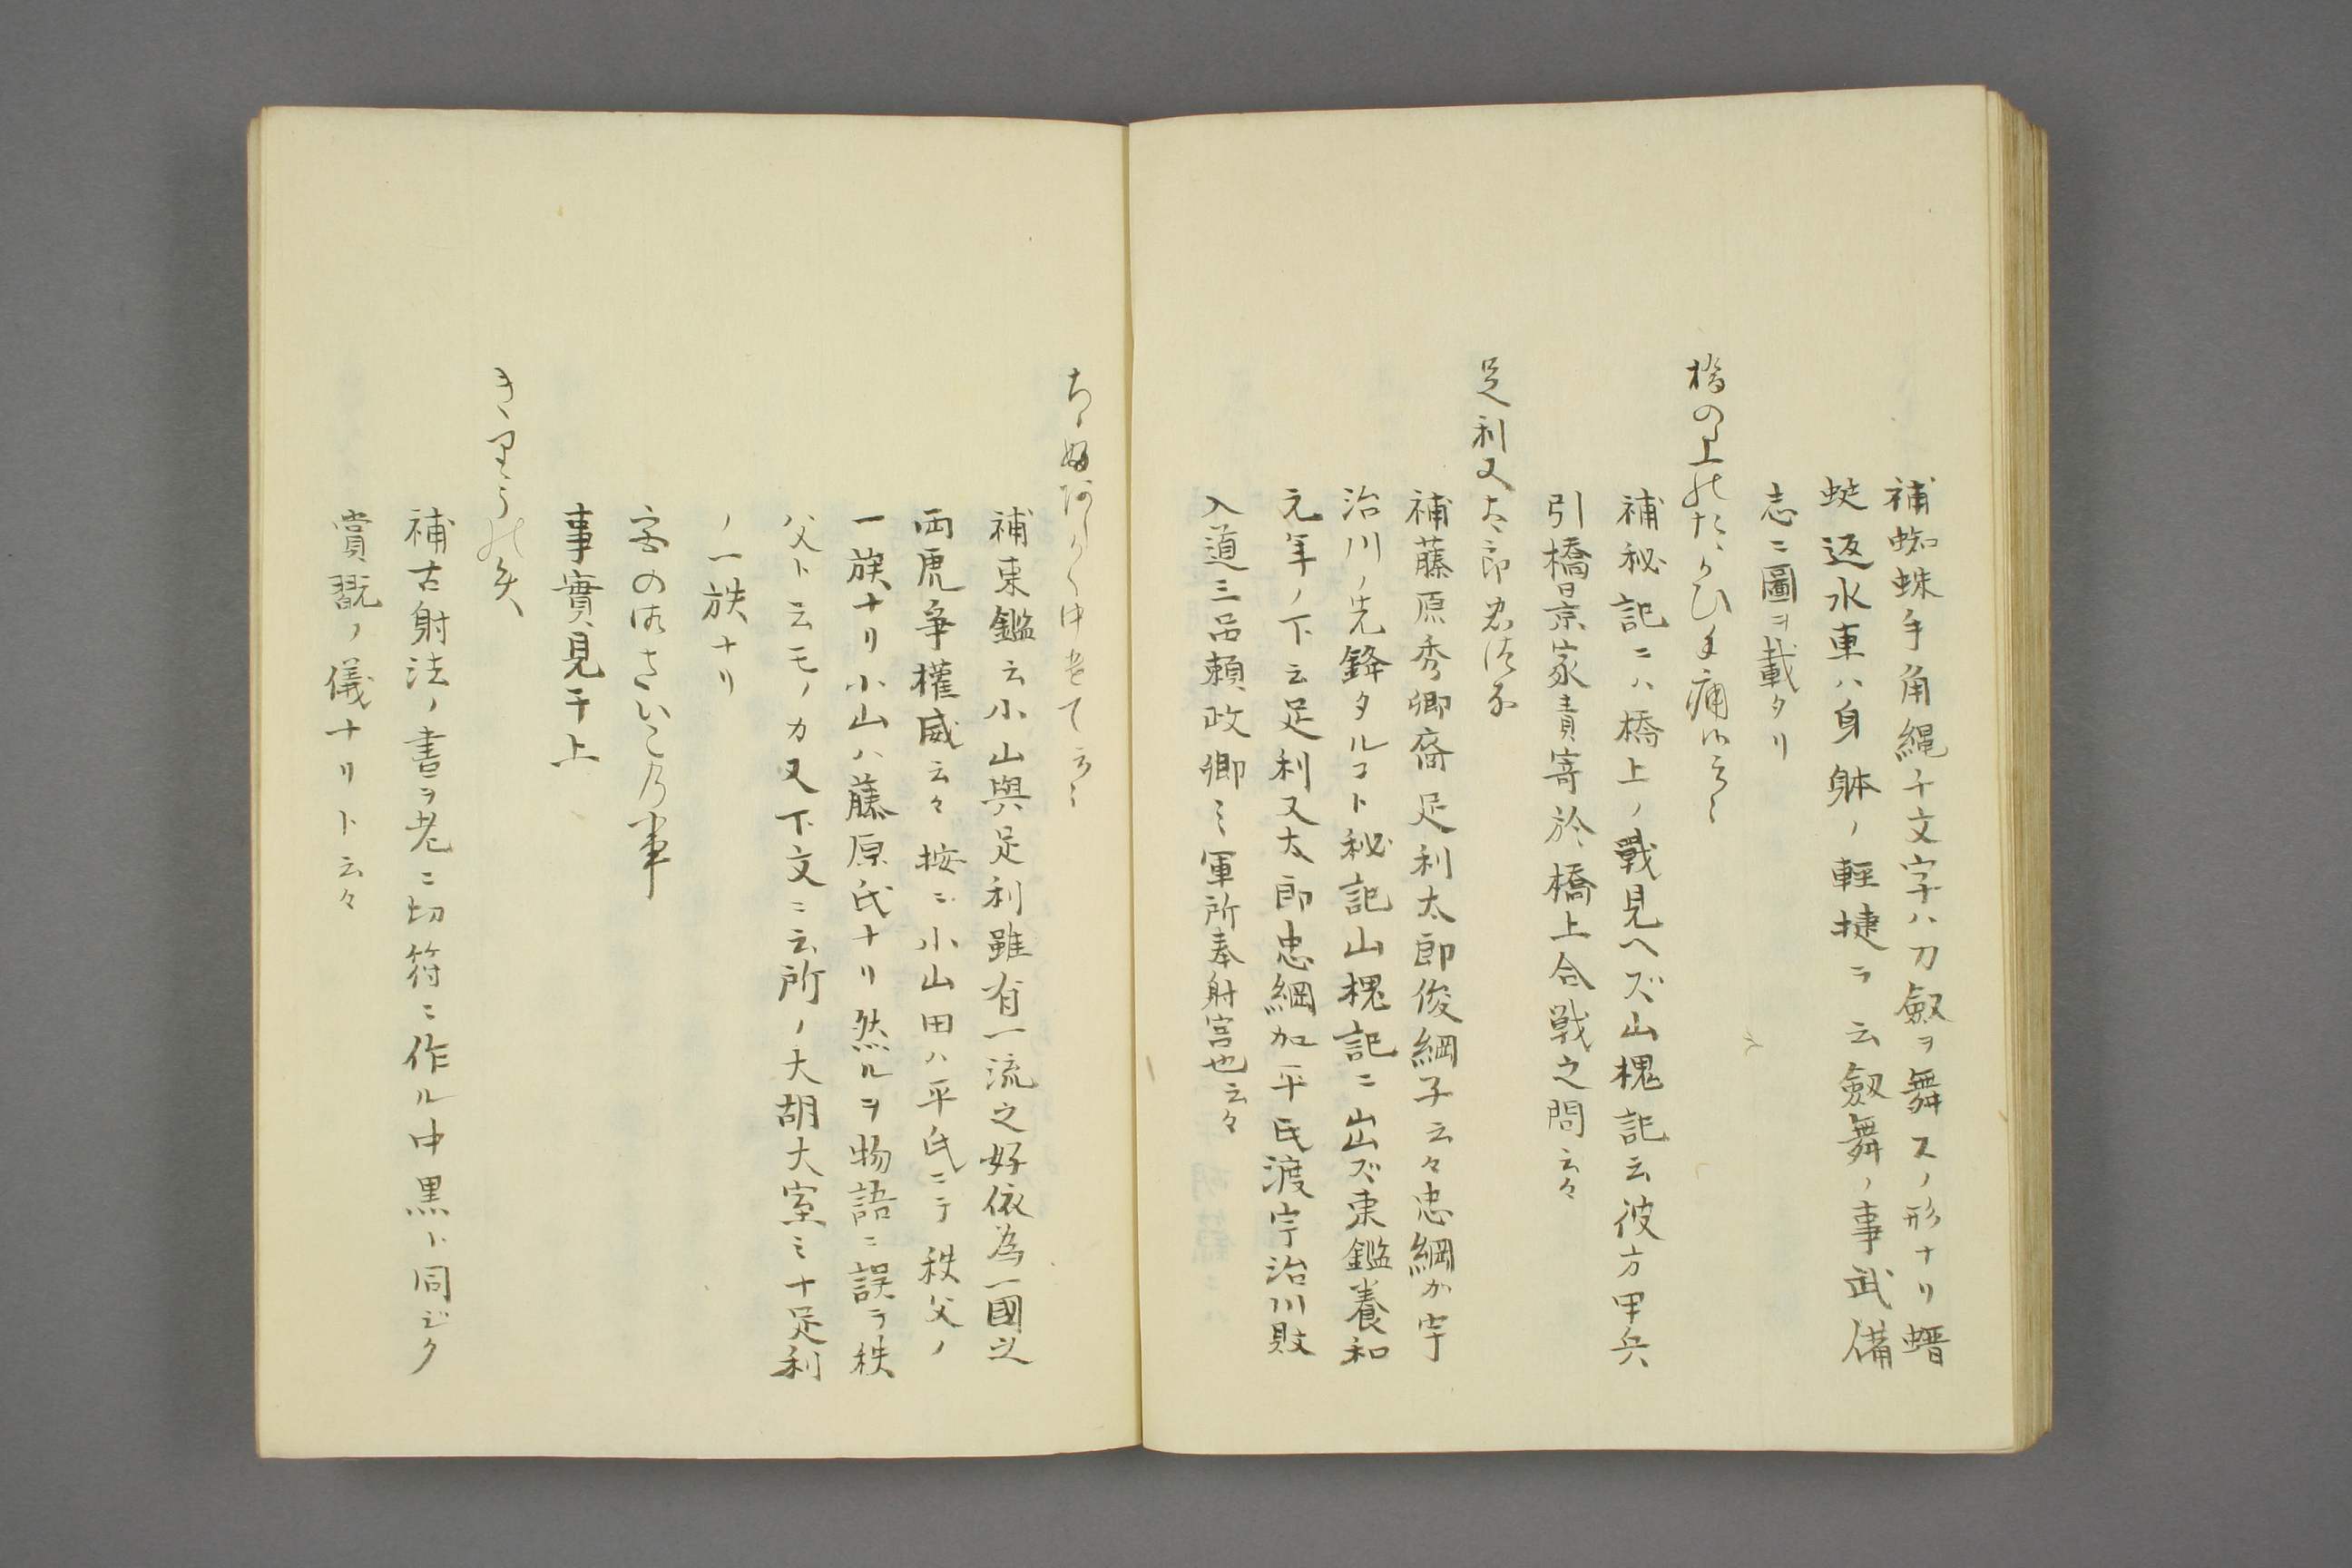 補蜘蛛手角縄十文字ハ刀劔ヲ舞スノ形ナリ蜻
蜓返水車ハ身躰ノ輕捷ヲ云劔舞ノ事武備
志ニ圖ヲ載タリ
橋の上のたゝかひ手痛候云々
補秘記ニハ橋上ノ戰見ヘズ山槐記云彼方甲兵
引橋曰京家責寄於橋上合戦之間云々
足利又太郎忠
補藤原秀卿裔足利太郎俊綱子云々忠綱カ宇
治川ノ先鋒タルコト秘記山槐記ニ出ズ東鑑養和
元年ノ下云足利又太郎忠綱加平氏渡宇治川敗
入道三品頼政卿之軍所奉射宮也云々
ちゝふ
補東鑑云小山與足利雖有一流之好依為一國之
両虎爭權威云々按ニ小山田ハ平氏ニテ秩父ノ
一族ナリ小山ハ藤原氏ナリ然ルヲ物語ニ誤ラ秩
父ト云モノカ又下文ニ云所ノ大胡大室ミナ足利
ノ一族ナリ
宮のさいこの事
事實見于上
きりうの矢
補古射法ノ書ヲ老ニ切符ニ作ル中黒ト同ジク
賞翫ノ儀ナリト云々